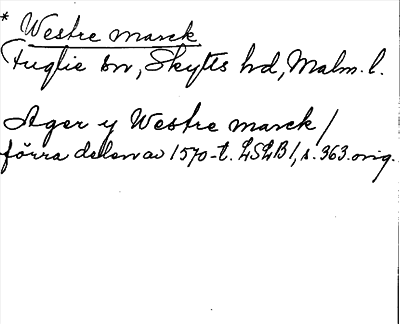 * Westre marck
Fuglie sn, Skytts hd, Malm. l.
Ager y Westre marck /
förra delen av 1570-t. LSLB 1, s. 363. orig.